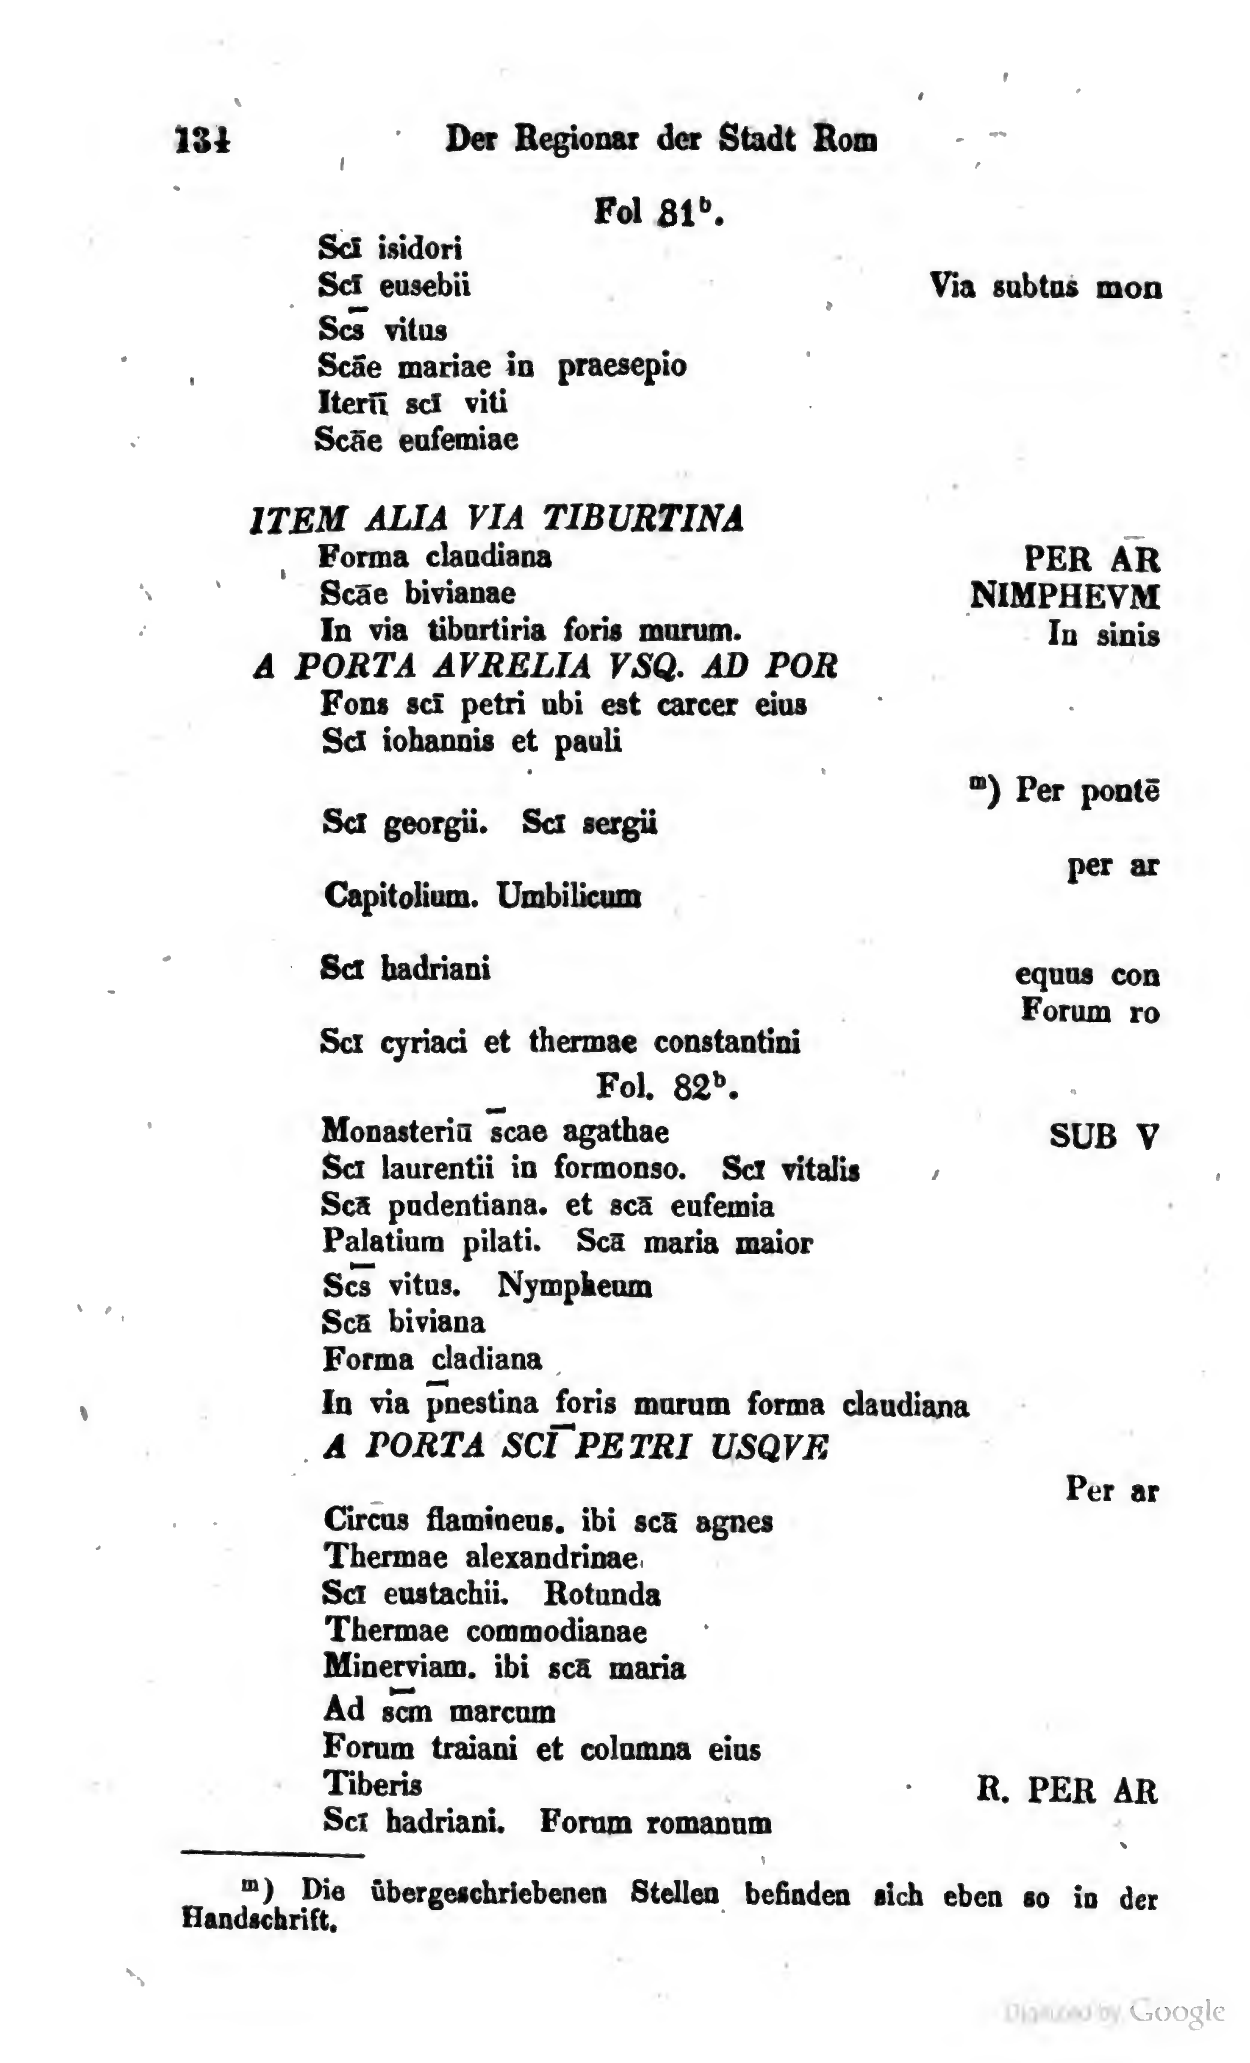 134 Der Regionar der Stadt Rom
Fol 81ᵇ.
Scī isidori
Scī eusebii Via subtus mon
Scs̄ vitus
Scāe mariae in praesepio
Iterū scī viti
Scāe eufemiae
ITEM ALIA VIA TIBURTINA
Forma claudiana PER AR̄
Scāe bivianae NIMPHEVM
In via tiburtiria foris murum. In sinis
A PORTA AVRELIA VSQ. AD POR
Fons scī petri ubi est carcer eius
Scī iohannis et pauli
ᵐ) Per pontē
Scī georgii. Scī sergii
per ar
Capitolium. Umbilicum
Scī hadriani equus con
Forum ro
Scī cyriaci et thermae constantini
Fol. 82ᵇ.
Monasteriū s̄cae agathae SUB V
Scī laurentii in formonso. Scī vitalis
Scā pudentiana. et scā eufemia
Palatium pilati. Scā maria maior
Scs̄ vitus. Nympheum
Scā biviana
Forma cladiana
In via p̄nestina foris murum forma claudiana
A PORTA SCĪ PETRI USQVE
Per ar
Circus flamineus. ibi scā agnes
Thermae alexandrinae
Scī eustachii. Rotunda
Thermae commodianae
Minerviam. ibi scā maria
Ad sc̄m marcum
Forum traiani et columna eius
Tiberis R. PER AR
Scī hadriani. Forum romanum
ᵐ) Die übergeschriebenen Stellen befinden sich eben so in der
Handschrift.
Digitized by Google